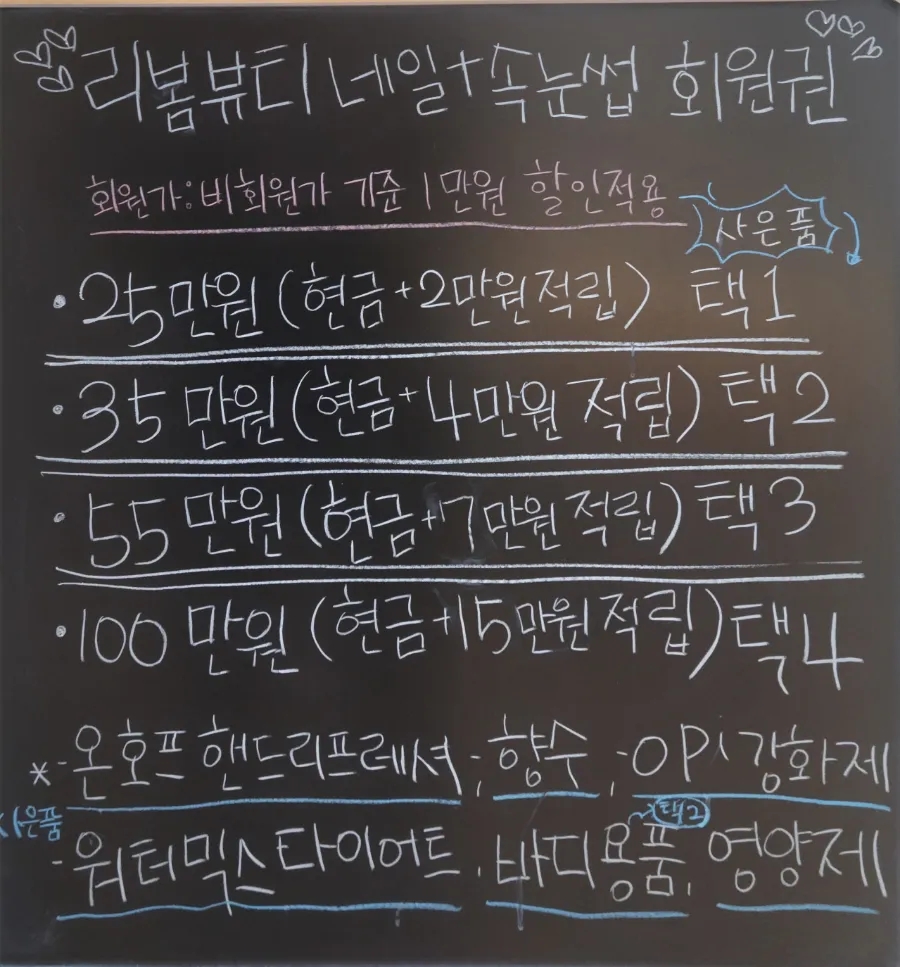 리봄뷰티 네일+속눈썹 회원권
회원가:비회원가 기준 1만원 할인적용
사은품
· 25만원 (현금+2만원적립) 택1
· 35만원 (현금+4만원 적립) 택2
· 55만원 (현금+7만원적립) 택3
· 100만원 (현금+15만원적립) 택4
* - 온호프 핸드리프레셔, 향수, OPI 강화제
사은품
택2
- 워터믹스다이어트, 바디용품, 영양제